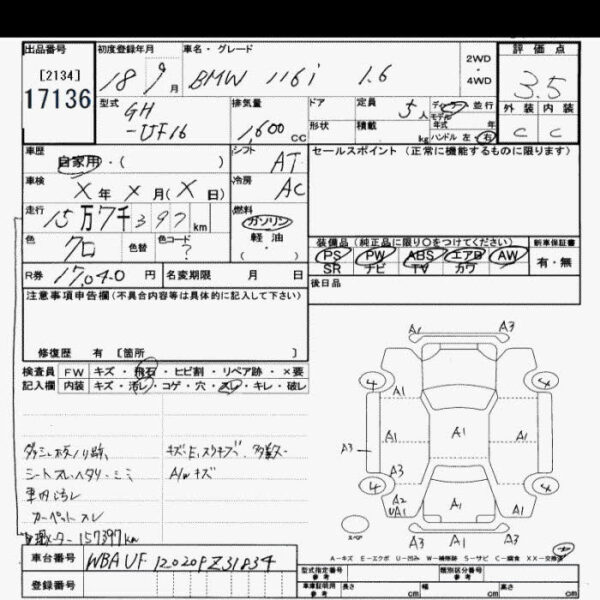 出品番号
[2134]
17136
初度登録年月
18 9月
車名・グレード
BMW 116i 1.6
2WD
・
4WD
評価点
3.5
外装 内装
C C
型式
GH
-UF16
排気量
1,600cc
ドア
形状
定員 5人
積載 kg
ディーラー 並行
モデル年式 年
ハンドル 左・右
車歴
自家用・( )
シフト
AT
セールスポイント (正常に機能するものに限ります)
車検
X年 X月(X日)
冷房
AC
走行
15万7千397km
燃料
ガソリン
軽油
色
クロ
色替
色コード
?
装備品(純正品に限り○をつけてください)
PS PW ABS エアB AW
SR ナビ TV カワ
新車保証書
有・無
R券 17,040円
名変期限 月 日
後日品
注意事項申告欄(不具合内容等は具体的に記入して下さい)
修復歴 有 [箇所
検査員
記入欄
FW キズ・飛石・ヒビ割・リペア跡・×要
内装 キズ・汚レ・コゲ・穴・スレ・キレ・破レ
キズ・
AWキズ
シートスレ・ヘタリ・シミ
車内汚レ
カーペットスレ
メーター 157397km
A1 A3
4 A1 4
A1 A1 A1
A3 A3
4 A1 4
A2
UA1
A3 A1 A3
スペア
A-キズ E-エクボ U-凹み W-補修跡 S-サビ C-腐食 XX-交換済
車台番号
WBAUF12020PZ31834
登録番号
型式指定番号
参考
類別区分番号
参考
車車証明用
参考
長さ cm
幅 cm
高さ cm